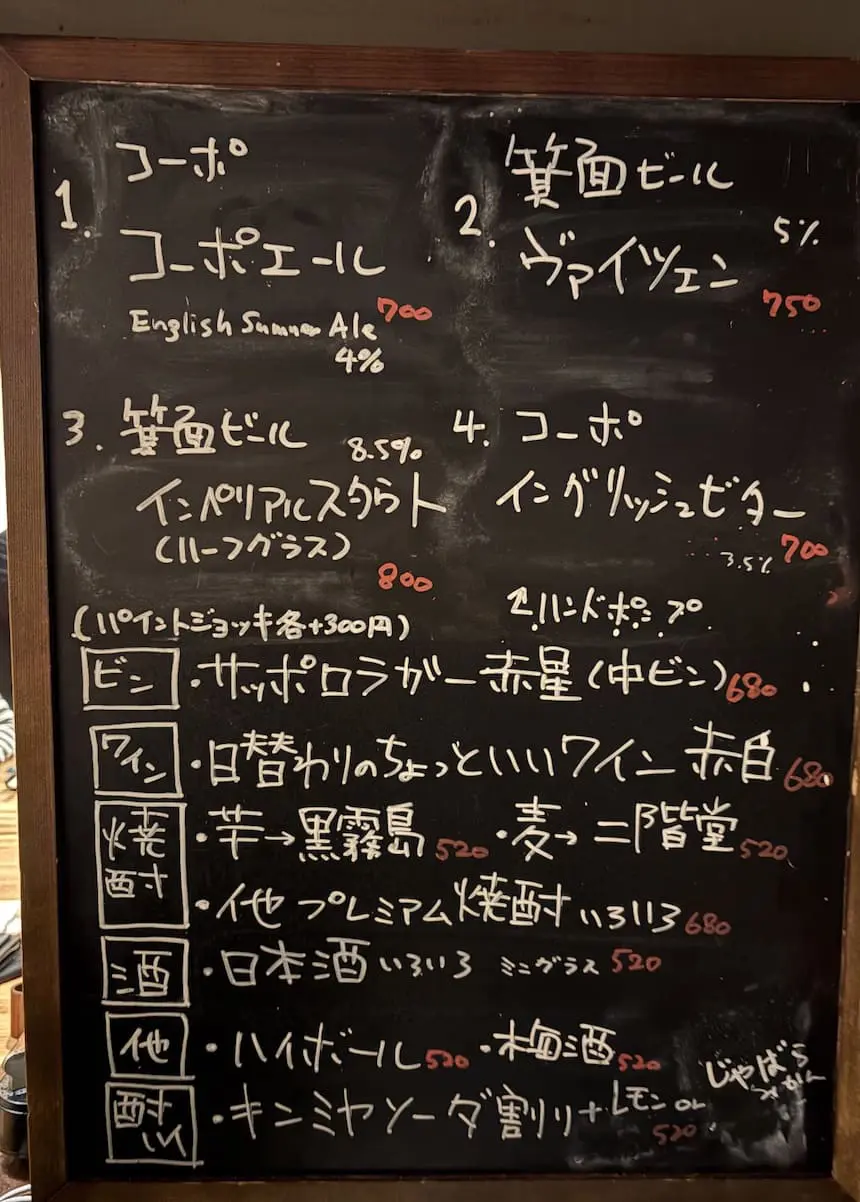 1. コーポ
コーポエール
English Summer Ale 700
4%
2. 箕面ビール
5%
ヴァイツェン
750
3. 箕面ビール
8.5%
インペリアルスタウト
(ハーフグラス)
800
4. コーポ
イングリッシュビター
3.5% 700
ハンドポンプ
(パイントジョッキ各+300円)
ビン ・サッポロラガー赤星(中ビン) 680
ワイン ・日替わりのちょっといいワイン 赤白 680
焼酎 ・芋→黒霧島 520 ・麦→二階堂 520
・他 プレミアム焼酎 いろいろ 680
酒 ・日本酒いろいろ ミニグラス 520
他 ・ハイボール 520 ・梅酒 520
酎ハイ ・キンミヤソーダ割り+レモン or じゃばら
520